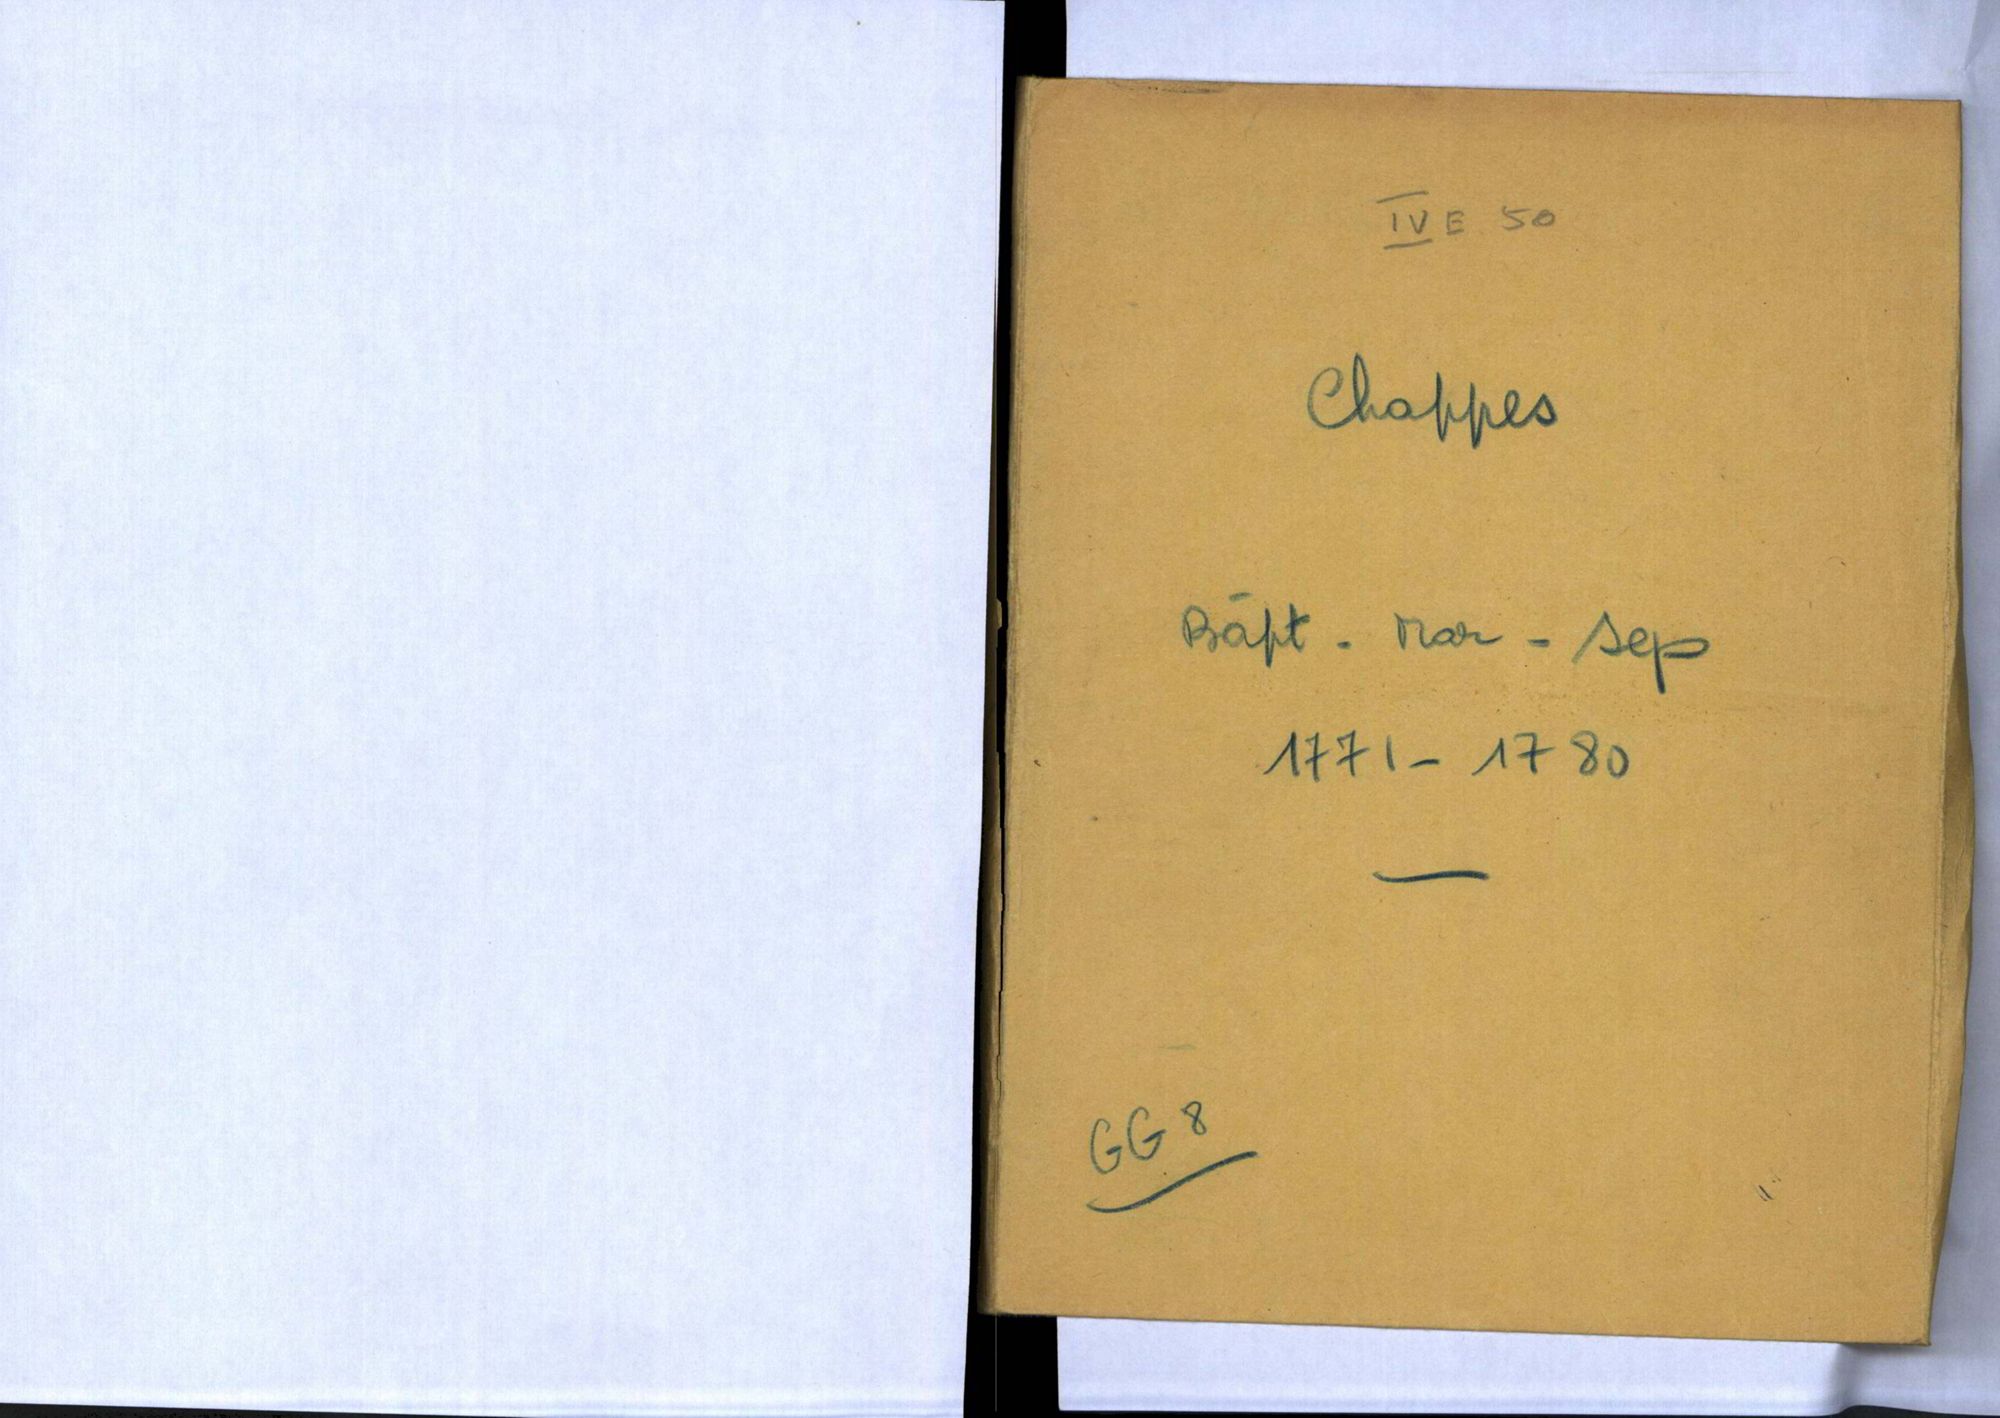 IV E 50
Chappes
Bâpt - Mar - Sep
1771 - 1780
GG 8